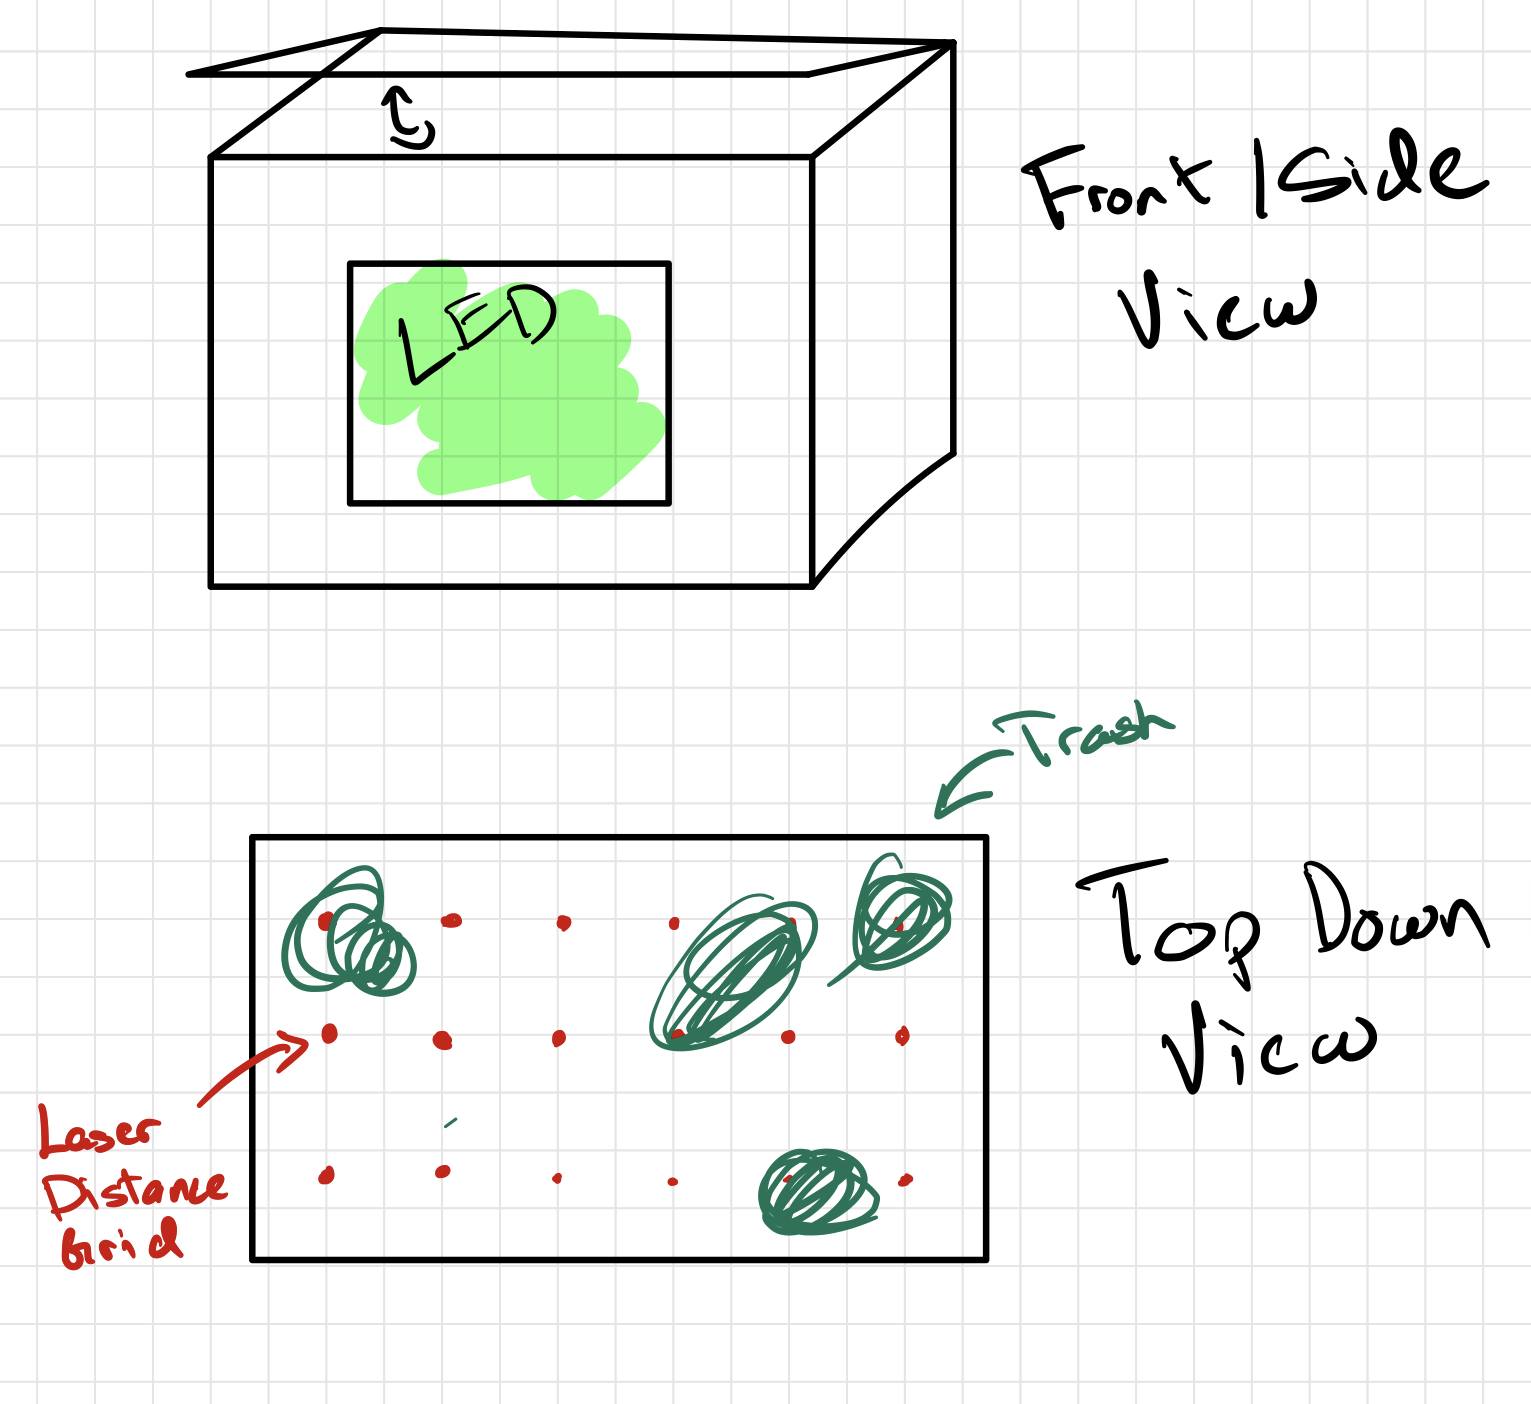 Front/Side
View
LED
Trash
Top Down
View
Laser
Distance
Grid